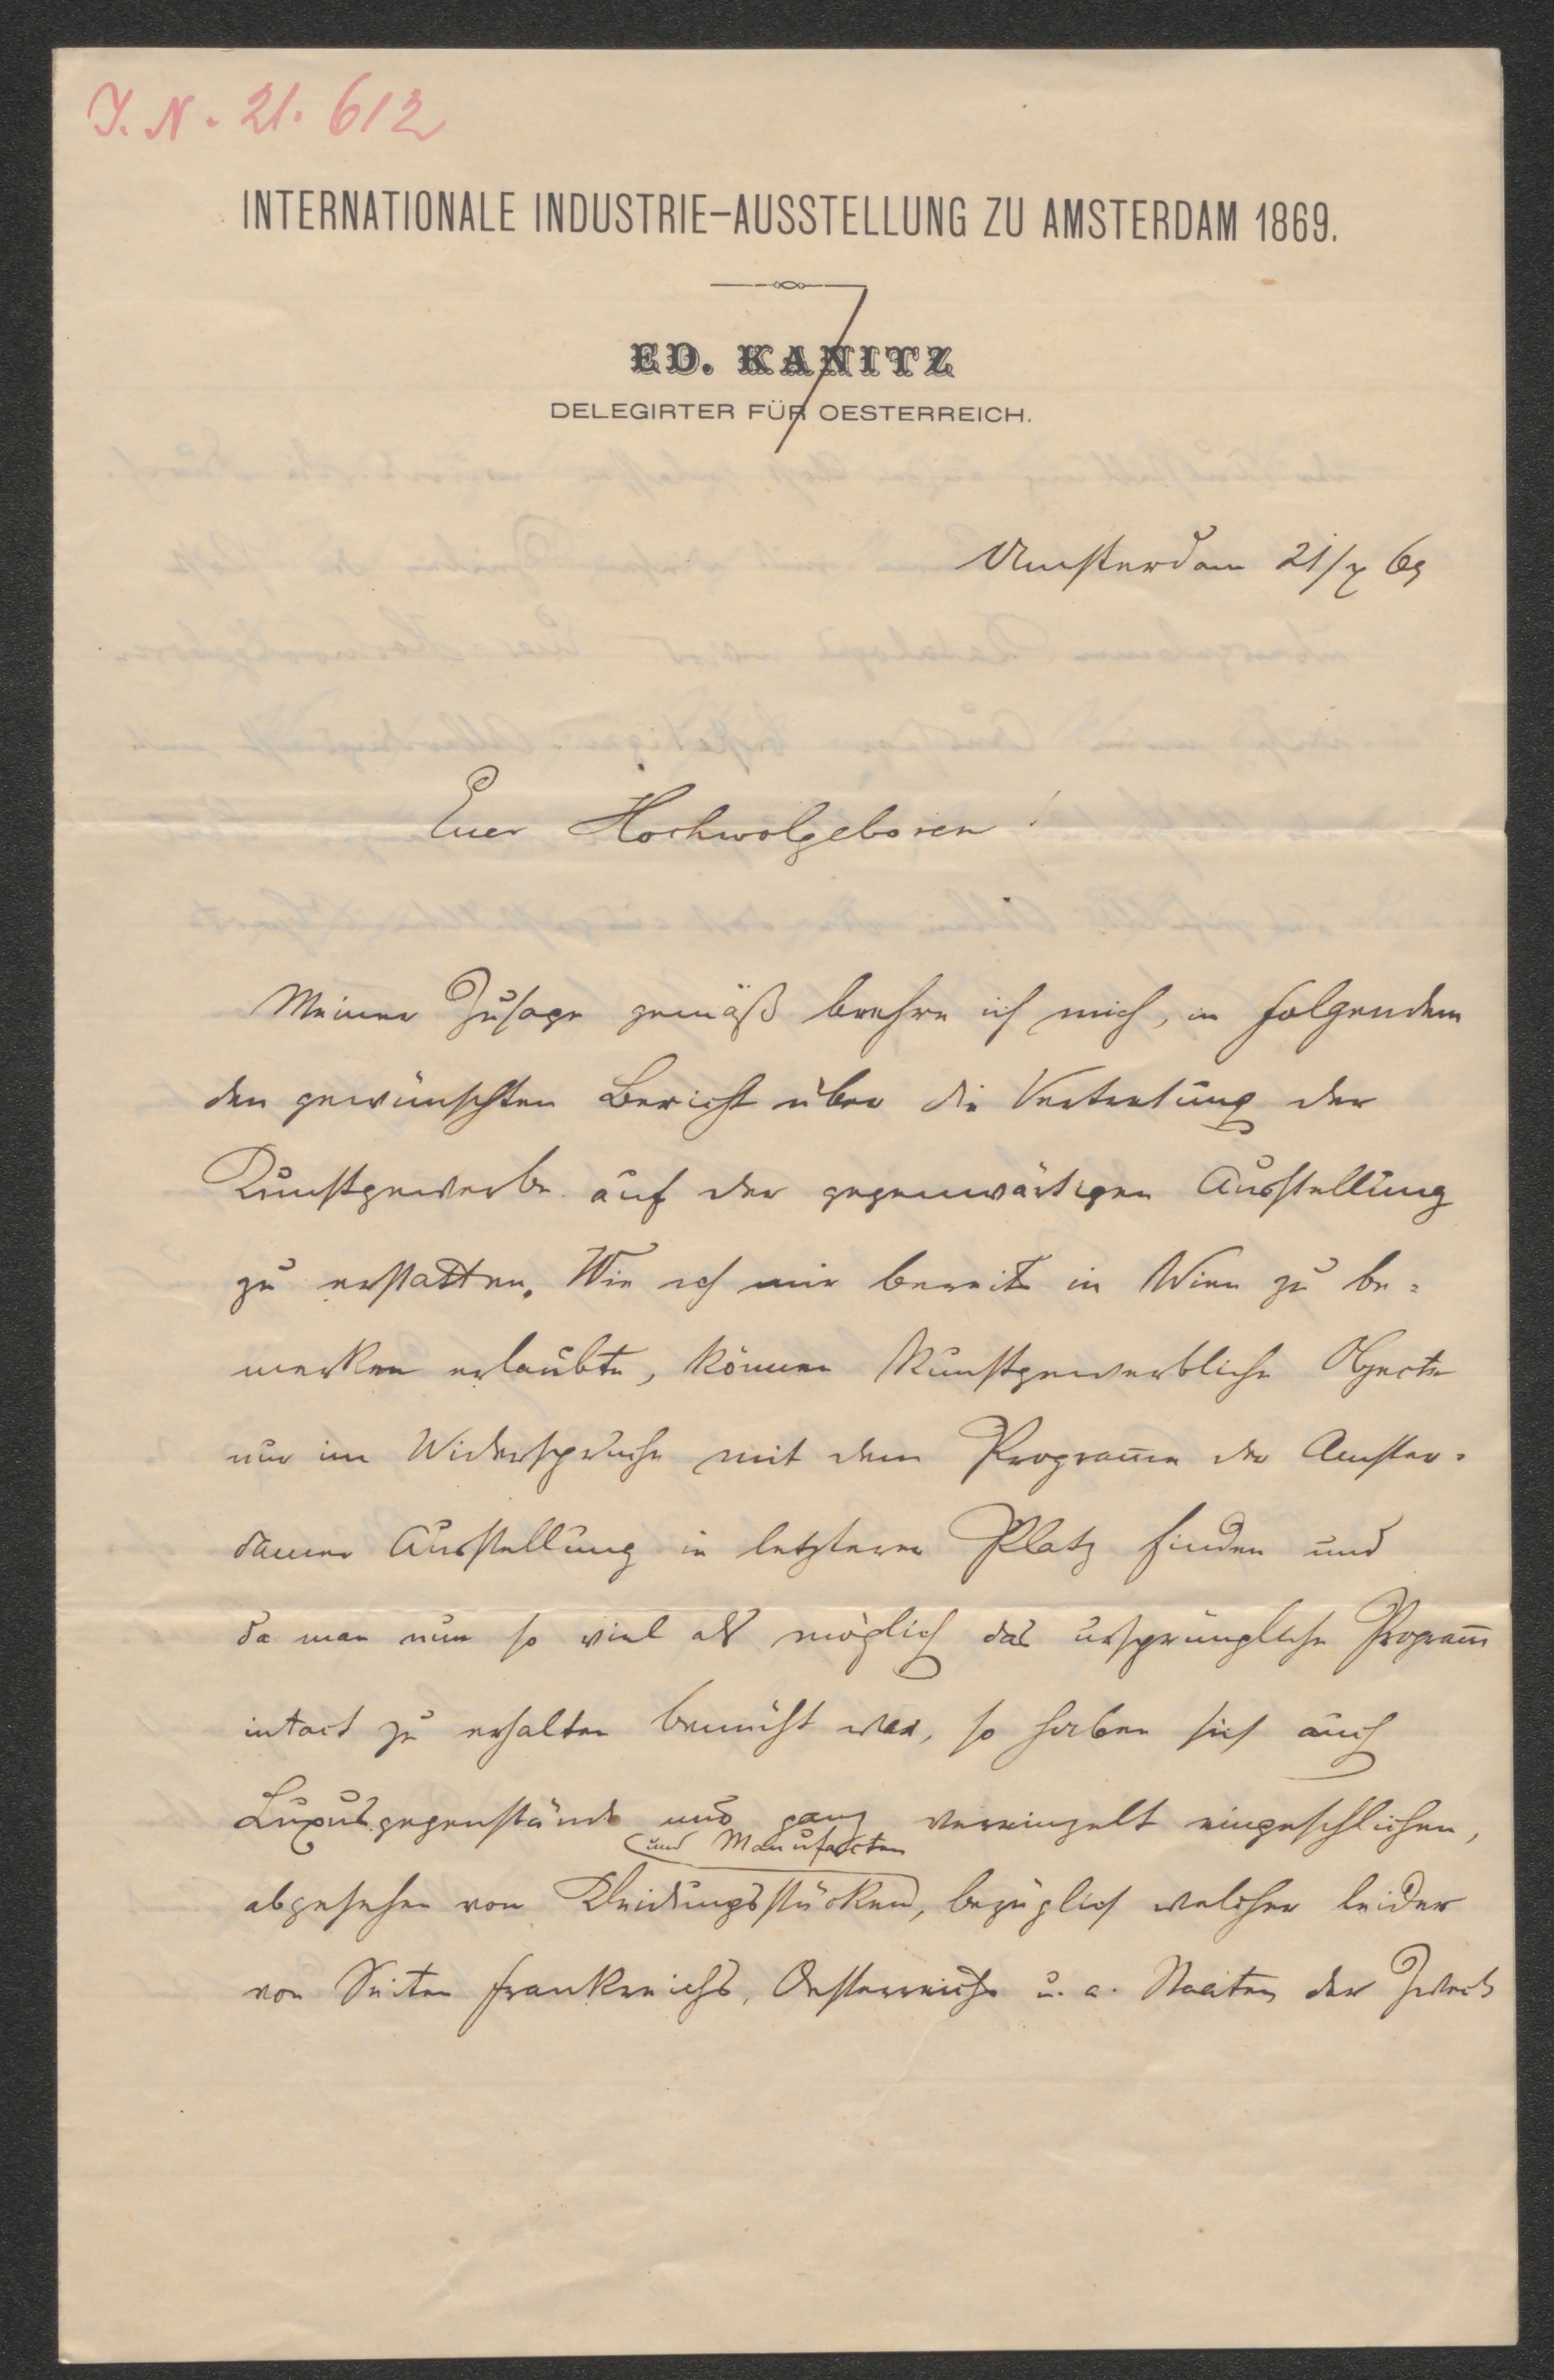 J. N. 21.612
INTERNATIONALE INDUSTRIE-AUSSTELLUNG ZU AMSTERDAM 1869.
ED. KANITZ
DELEGIRTER FÜR OESTERREICH.
Amsterdam 21/7 69
Euer Hochwolgeboren!
Meiner Zusage gemäß beehre ich mich, in folgendem
den gewünschten Bericht über die Vertretung der
Kunstgewerbe auf der gegenwärtigen Ausstellung
zu erstatten. Wie ich mir bereits in Wien zu be=
merken erlaubte, können kunstgewerbliche Objecte
nur im Widerspruche mit dem Programe der Amster=
damer Ausstellung in letzterer Platz finden und
da man nun so viel als möglich das ursprüngliche Program̅
intact zu erhalten bemüht war, so haben sich auch
Luxusgegenstände nur ganz vereinzelt eingeschlichen,
und Manufacten
abgesehen von Kleidungsstücken, bezüglich welcher leider
von Seiten Frankreichs, Oesterreichs u. a. Staaten der Zweck